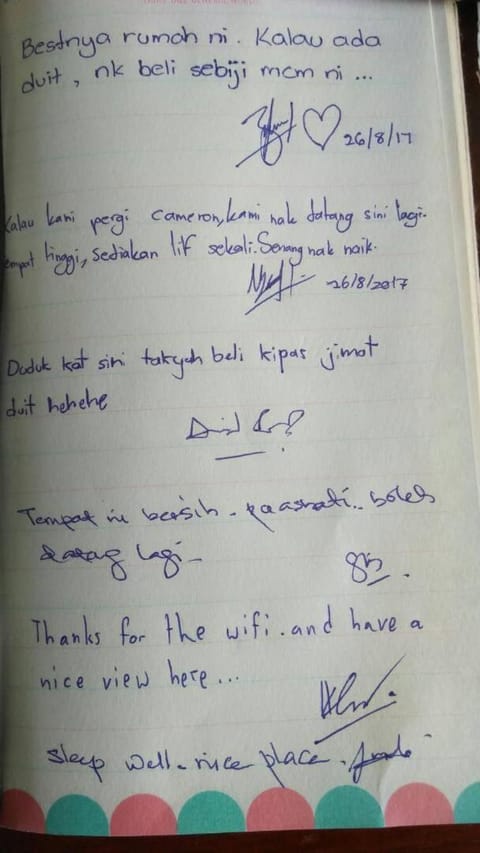 Bestnya rumah ni. Kalau ada
duit, nk beli sebiji mcm ni ...
26/8/17
Kalau kami pergi Cameron, kami nak datang sini lagi.
empat tinggi, sediakan lif sekali. Senang nak naik.
26/8/2017
Duduk kat sini takyah beli kipas jimat
duit hehehe
Tempat ni bersih. boleh
datang lagi
Thanks for the wifi. and have a
nice view here...
Sleep well. nice place.